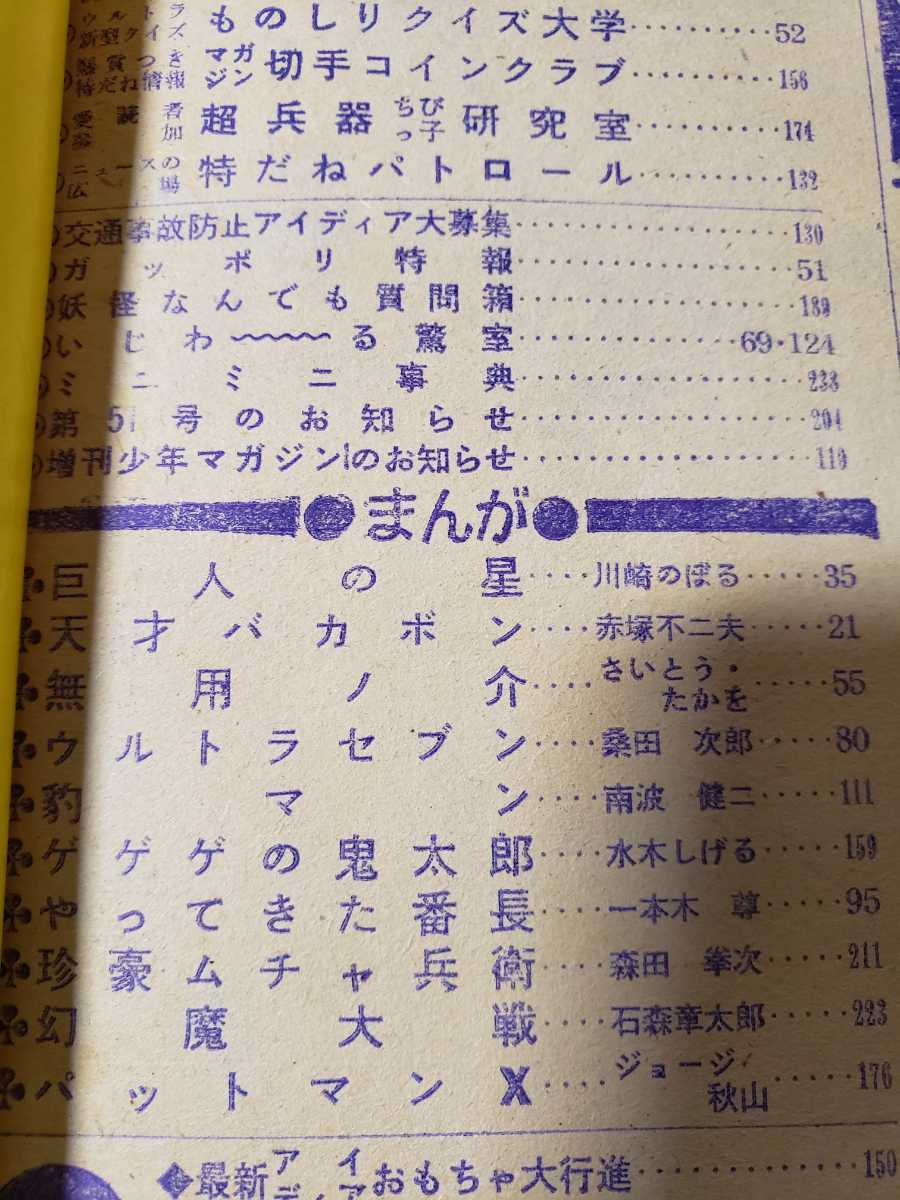 ものしりクイズ大学‥‥‥52
マガジン切手コインクラブ‥‥‥156
愛読者参加 超兵器ちびっ子研究室‥‥‥174
ニュースの広場 特だねパトロール‥‥‥132
交通事故防止アイディア大募集‥‥‥130
ガッポリ特報‥‥‥51
妖怪なんでも質問箱‥‥‥189
いじわ〜〜〜る驚室‥‥‥69・124
ミニミニ事典‥‥‥233
第51号のお知らせ‥‥‥204
増刊少年マガジンのお知らせ‥‥‥119
●まんが●
巨人の星‥‥川崎のぼる‥‥35
天才バカボン‥‥赤塚不二夫‥‥21
無用ノ介‥‥さいとう・たかを‥‥55
ウルトラセブン‥‥桑田 次郎‥‥80
豹マン‥‥南波 健二‥‥111
ゲゲゲの鬼太郎‥‥水木しげる‥‥159
やってきた番長‥‥一本木 尊‥‥95
珍豪ムチャ兵衛‥‥森田 拳次‥‥211
幻魔大戦‥‥石森章太郎‥‥223
パットマンX‥‥ジョージ秋山‥‥176
最新アイディアおもちゃ大行進‥‥‥150